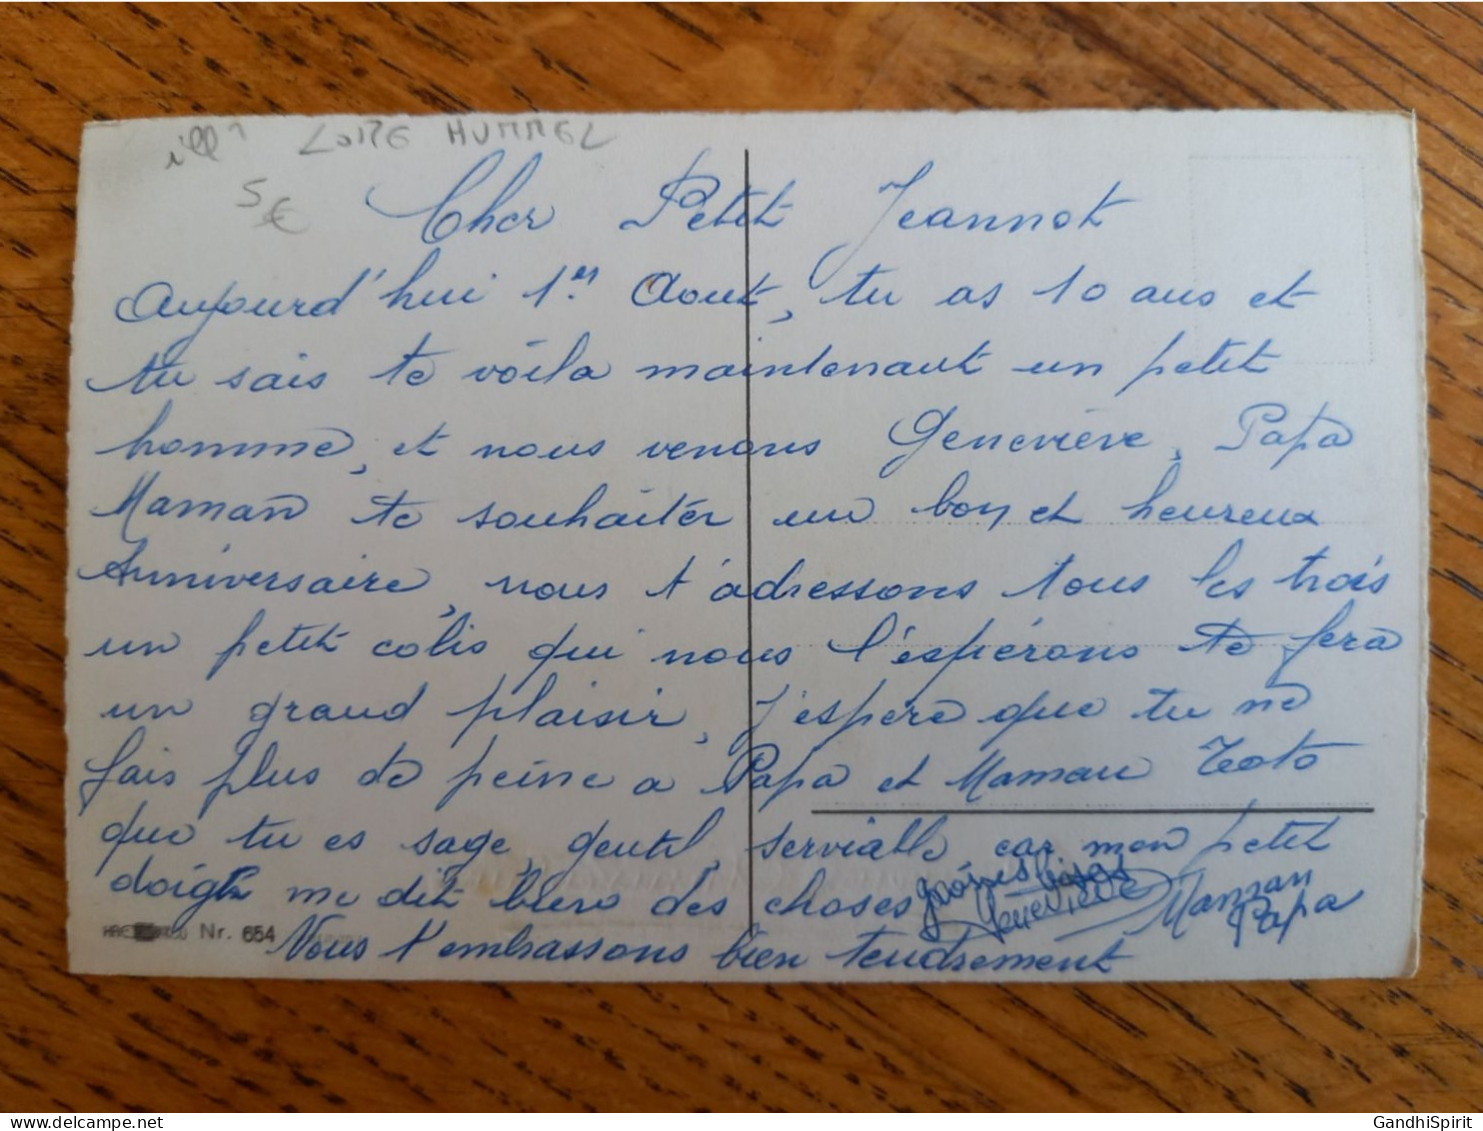 ill LOITE HUMMEL
5 €
Cher Petit Jeannot
Aujourd'hui 1er Aout, tu as 10 ans et
tu sais te voila maintenant un petit
homme, et nous venons Geneviève, Papa
Maman te souhaiter un bon et heureux
Anniversaire, nous t'adressons tous les trois
un petit colis qui nous l'espérons te fera
un grand plaisir, J'espère que tu ne
fais plus de peine a Papa et Maman Toto
que tu es sage, gentil, serviable, car mon petit
doigt me dit bien des choses
grosses bises Geneviève Maman
Papa
Nous t'embrassons bien tendrement
Nr. 654
GandhiSpirit